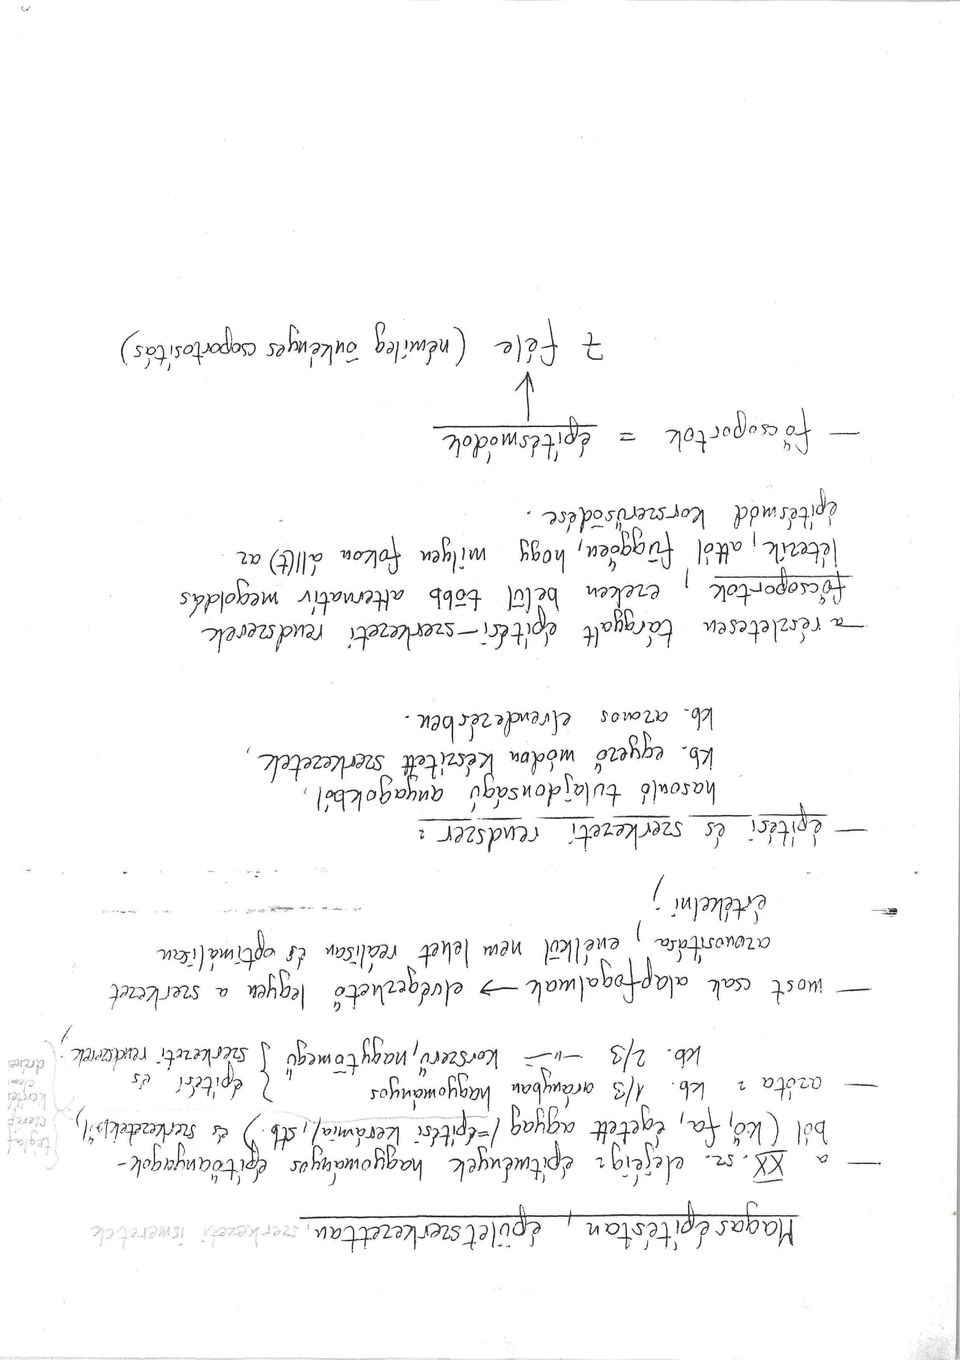 Magasépítéstan, épületszerkezettan, szerkezeti ismeretek
— a XX. sz. elejéig: építmények hagyományos építőanyagok-
ból (kő, fa, égetett agyag /=építési kerámia/, stb.) és szerkezetekből;
— azóta: kb. 1/3 arányban hagyományos } építési és
kb. 2/3 –"– korszerű, nagytömegű } szerkezeti rendszerek;
— most csak alapfogalmak → elvégezhető legyen a szerkezet
azonosítása, enélkül nem lehet reálisan és optimálisan
értékelni;
— építési és szerkezeti rendszer:
hasonló tulajdonságú anyagokból,
kb. egyező módon készített szerkezetek,
kb. azonos elrendezésben.
— a részletesen tárgyalt építési-szerkezeti rendszerek
főcsoportok, ezeken belül több alternatív megoldás
létezik, attól függően, hogy milyen fokon áll(t) az
építésmód korszerűsödése.
— főcsoportok = építésmódok
↓
7 féle (némileg önkényes csoportosítás)